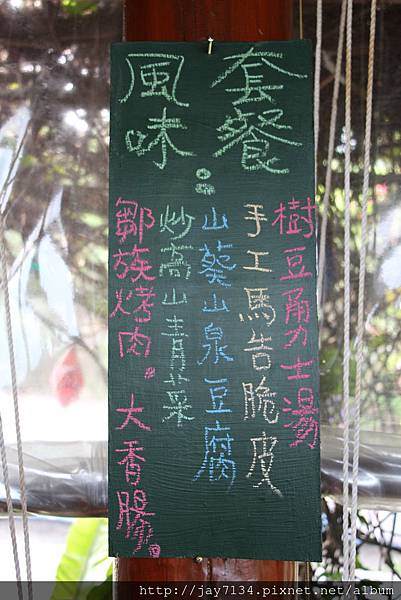 風味套餐：
樹豆勇士湯
手工馬告脆皮
山葵山泉豆腐
炒高山青菜
鄒族烤肉。大香腸。
http://jay7134.pixnet.net/album